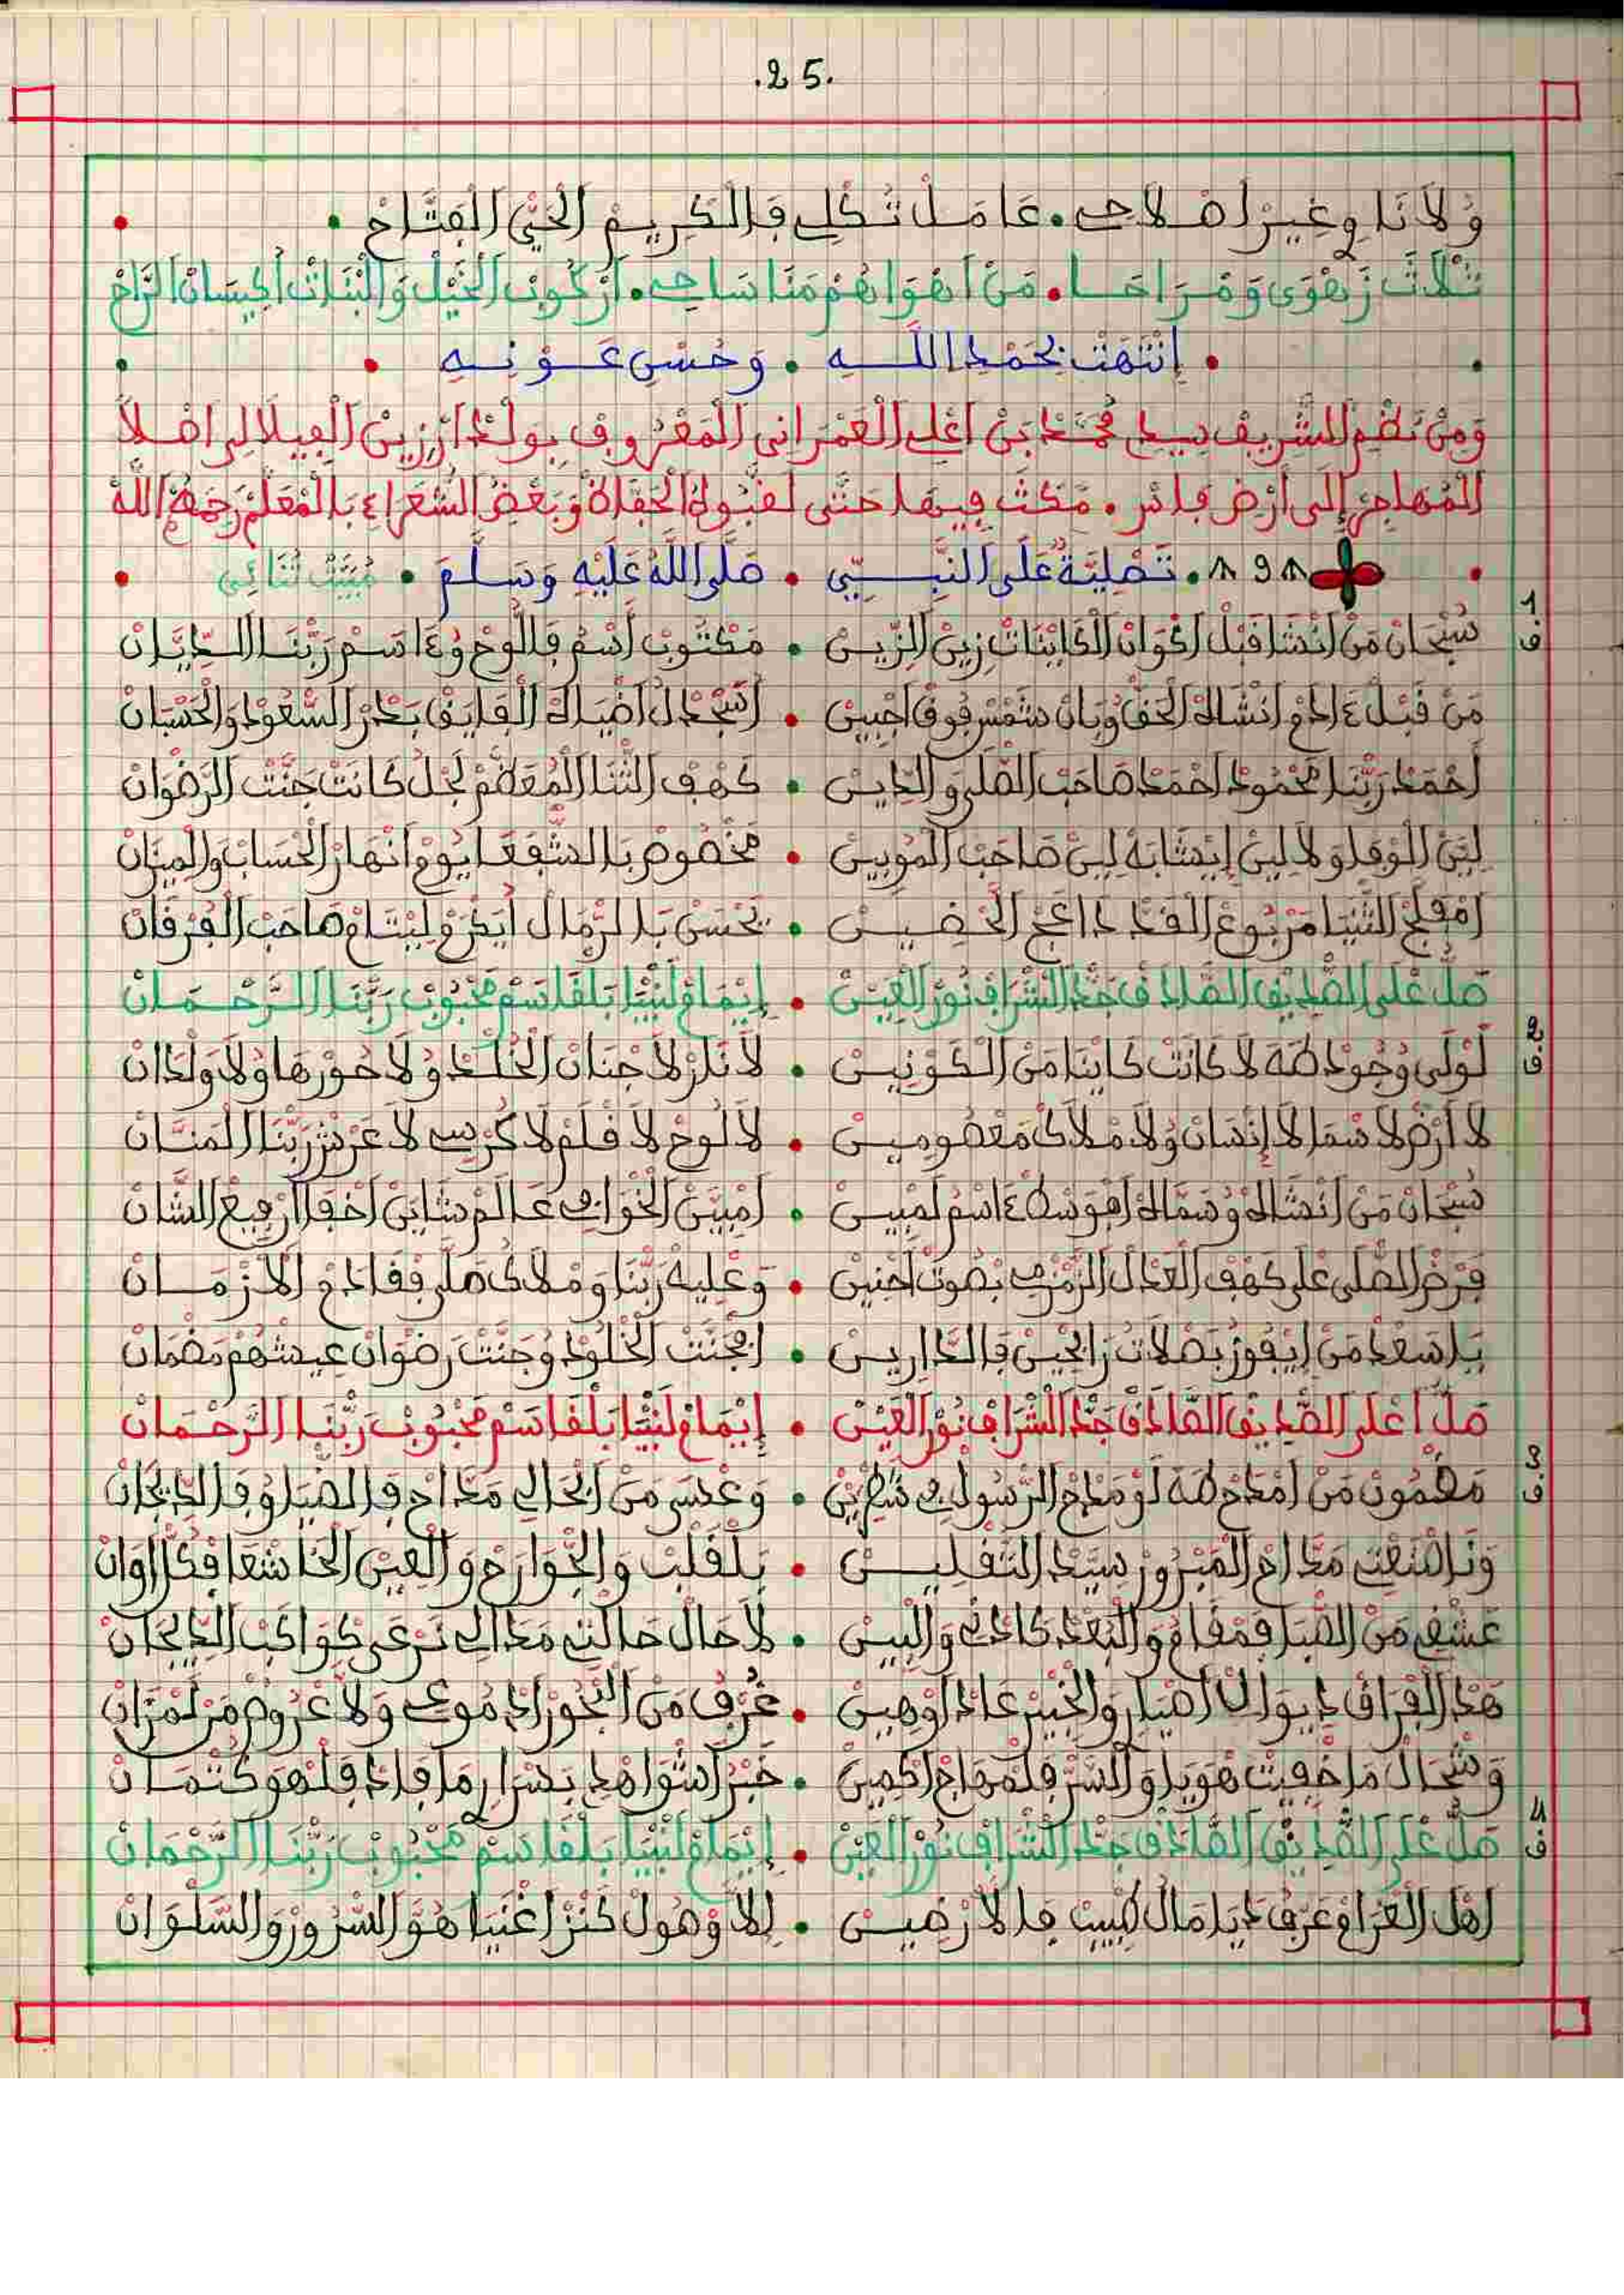 .25.
وُلَانَا وغِيرْ اصْلَاحِي • عَامَلْ تُكْلِي فَالْكَرِيمْ الْحَيّْ الْفَتَّاحْ •
ثْلَاثَ زَهْوَى وَمْرَاحَا • مَنْ اهْوَاهُمْ مَنَّا سَاحِي • ارْكُوبْ الْخَيْلْ وَالْبْنَاتْ اكِيسَانْ الرَّاحْ
• اِنْتَهَتْ بِحَمْدِ اللَّهِ • وَحُسْنِ عَوْنِهِ •
وَمِنْ نَظْمِ الشَّرِيفْ سِيدِي مُحَمَّدْ بَنْ اعْلِي الْعَمْرَانِي الْمَعْرُوفْ بِوَلْدْ ارْزِينْ الْفِيلَالِي اصْلاً
الْمُهَاجِرْ إِلَى أَرْضِ فَاسْ • مَكَثَ فِيهَا حَتَّى لَقْبُوهْ الْحَفَّاظْ وَبَعْضُ الشُّعَرَاءْ بَالْمَعَلَّمْ رَحِمَهُ اللَّهُ
• 898 • تَصْلِيَةٌ عَلَى النَّبِيِّ • صَلَّى اللَّهُ عَلَيْهِ وَسَلَّمَ • مْبَيَّتْ ثُنَائِي •
1 ف
سُبْحَانْ مَنْ انْشَا قَبْلْ اكْوَانْ الْكَايْنَاتْ زِينْ الزِّينْ • مَكْتُوبْ اسْمُ فَاللُّوحْ وُءَاسَمْ رَبّْنَا الدِّيَّانْ
مَنْ قَبْلْ ءَادَمْ انْشَاهْ الْحَقّْ وُبَانْ شَمْسْ فُوقْ اجْبِينْ • اسْجَدْ لُ اضْيَاهْ الْفَايَقْ بَدْرْ السُّعُودْ وَالْحَسْبَانْ
أَحْمَدْ رَبّْنَا مَحْمُودْ احْمَدْ صَاحَبْ الصّْلَى وَالدِّينْ • كَهْفْ الثّْنَا الْمُعَظَّمْ لَجْلُ كَانَتْ جَنَّتْ الرَّضْوَانْ
لِيَّنْ الْوْفَا وَلَا لِينْ إِيشَابَهْ لِينْ صَاحَبْ الْمُوبِينْ • مَخْصُوصْ بَالشّْفَعَا يُومْ انْهَارْ الْحْسَابْ وَالْمِيزَانْ
امْفَلَّجْ الثّْنَيَا مَرْبُوعْ الْقَدّْ دَاعَجْ الْحْضِينْ • يَحْسَنْ بَالرّْمَالْ أَيَكْرَمْ لِيْتَامْ صَاحَبْ الْفُرْقَانْ
صَلُّ عْلَى الصّْدِيقْ الصَّادَقْ جَدّْ الشّْرَافْ نُورْ الْعَيْنْ • إِيمَامْ لَنْبِيَا بَلْقَاسَمْ مَحْبُوبْ رَبّْنَا الرَّحْمَانْ
2 ف
لَوْلَى وُجُودْ طَهَ لَا كَانَتْ كَايْنَا مَنْ الْكَوْنِينْ • لَا نَارْ لَا جْنَانْ الْخُلْدْ وُلَا حُورْهَا وُلَا وَلْدَانْ
لَا أَرْضْ لَا سْمَا لَا إِنْسَانْ وُلَا مْلَاكْ مَعْصُومِينْ • لَا لُوحْ لَا قْلَمْ لَا كُرْسِي لَا عَرْشْ رَبّْنَا الْمَنَّانْ
سُبْحَانْ مَنْ انْشَاهْ وُسَمَّاهْ اهُوَ سَطْ ءَاسَمْ لَمْبِينْ • امْبَيَّنْ الْخْوَافِي عَالَمْ شَايَنْ اخْفَا ارْفِيعْ الشَّانْ
فَرْضْ الصّْلَى عْلَى كَهْفْ الْعْدَالْ الزَّمْزْمِي بْصُوتْ احْنِينْ • وَعْلِيهْ رَبّْنَا وَمْلَاكُ صَلَّى فْقَادَمْ الَازْمَانْ
يَا سَعْدْ مَنْ إِيفُوزْ بَصْلَاتُ رَابْحِينْ فَالدَّارِينْ • ابْجَنَّتْ الْخْلُودْ وُجَنَّتْ رَضْوَانْ عِيشْتْهُمْ مَضْمَانْ
صَلُّ اعْلَى الصّْدِيقْ الصَّادَقْ جَدّْ الشّْرَافْ نُورْ الْعَيْنْ • إِيمَامْ لَنْبِيَا بَلْقَاسَمْ مَحْبُوبْ رَبّْنَا الرَّحْمَانْ
3 ف
مَضْمُونْ مَنْ امْدَحْ طَهَ لَوْ مَدْحْ الرَّسُولْ فِي شَطْرِينْ • وَعْسَى مَنْ ابْحَالِي مَدَّاحْ فَالضّْيَا وُفَالدِّيجَانْ
وَنَا اشْغَفْتْ مَدَّاحْ الْمَبْرُورْ سِيَّدْ الثَّقْلِينْ • بَلْقَلْبْ وَالْجْوَارَحْ وَالْعِينْ الْخَاشْعَا فْكُلّْ اوَانْ
عَشْقِي مَنْ الصّْبَا فَمْقَامُ وَالْبُعْدْ كَادْنِي وَالْبِينْ • لَا حَالْ حَالْتِي مَدَالِي نَرْعَى كْوَاكَبْ الدِّيجَانْ
هَذَا الْفْرَاقْ دِيوَانُ اصْبَارِ وَالْخْبِيرْ عَادْ اوْهِينْ • غُرْفْ مَنْ الْبْحُورْ ادْمُوعِي وَلَا عْرُوضْ مَنْ لَمْزَانْ
وَشْحَالْ مَا خْفِيتْ هْوَيَا وَالسّْرّْ فَلْمْهَاجْ اكْمِينْ • خَبْرْ اشْوَاهْدِي بَسْرَارِ مَا فَادْ فَلْهْوَ كَتْمَانْ
صَلُّ عْلَى الصّْدِيقْ الصَّادَقْ جَدّْ الشّْرَافْ نُورْ الْعَيْنْ • إِيمَامْ لَنْبِيَا بَلْقَاسَمْ مَحْبُوبْ رَبّْنَا الرَّحْمَانْ
4 ف
اهْلْ الْغْرَامْ عَرْفْ دْيَامَالْ طِيبْ فَالَارْضِينْ • إِلَا وْهُولْ كَنْزْ اغْنَيَا هُوَ السّْرُورْ وَالسَّلْوَانْ